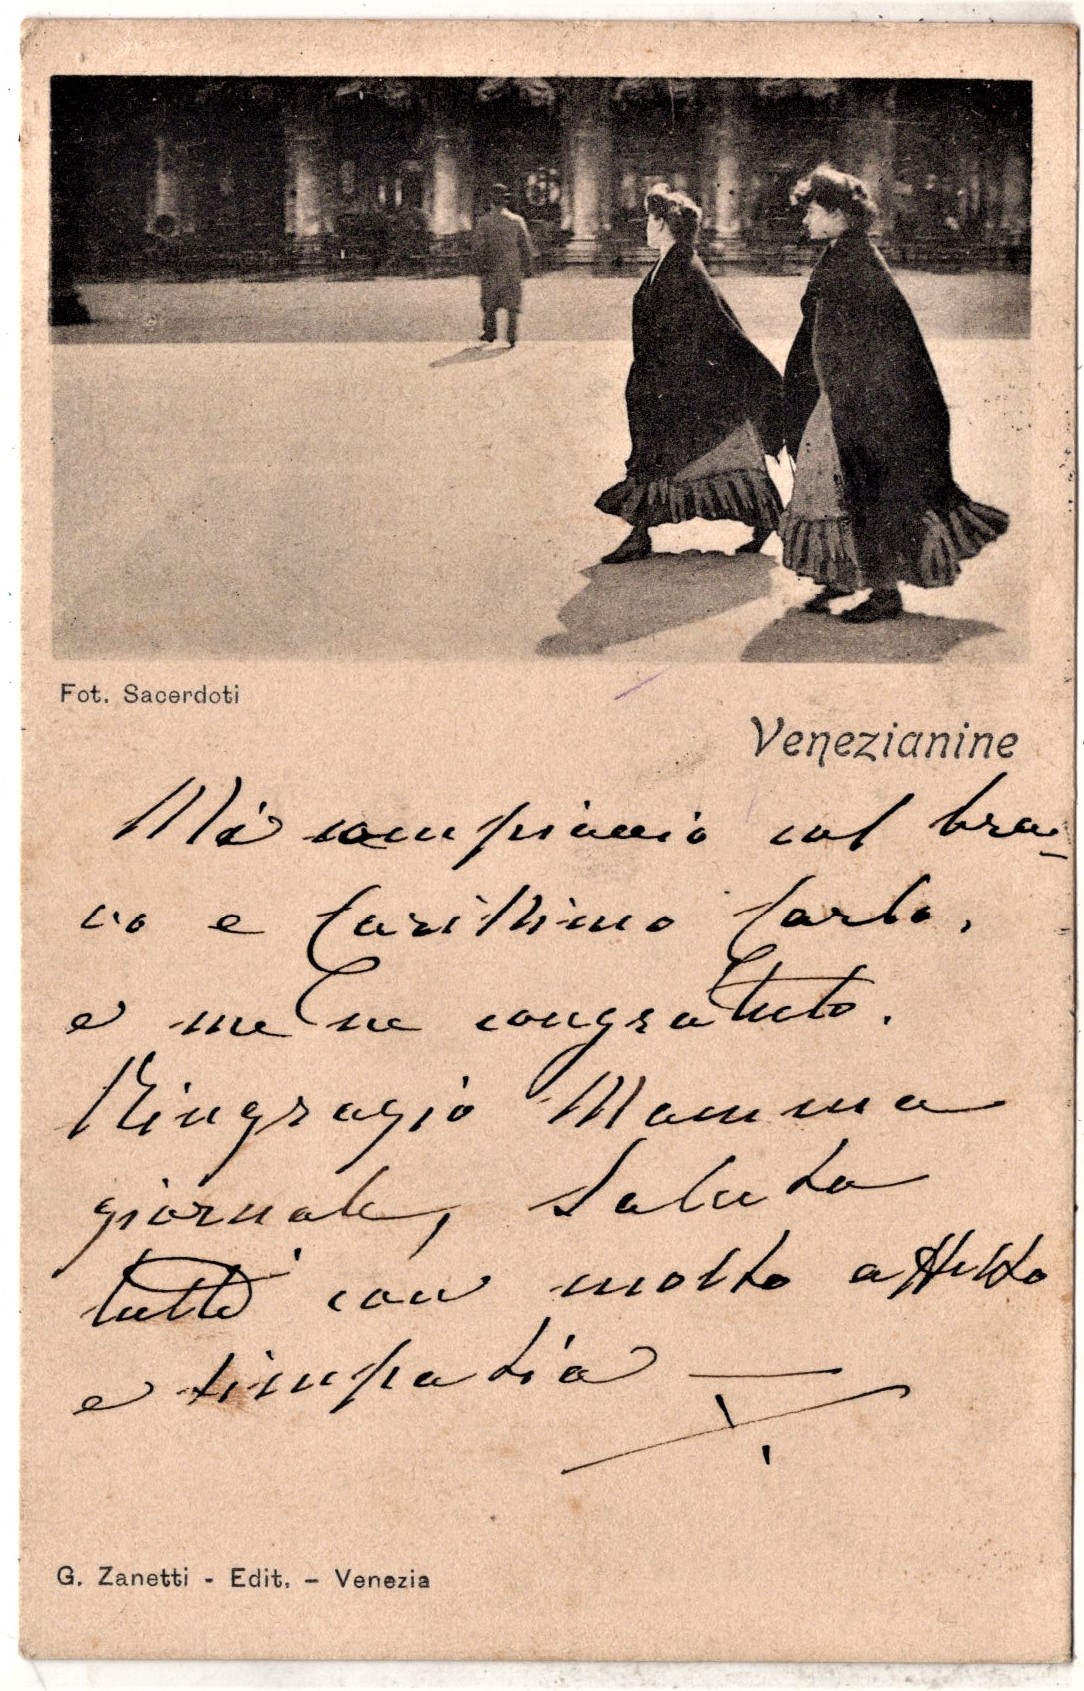 Fot. Sacerdoti
Venezianine
Mi compiaccio col bra-
vo e Carissimo Carlo,
e me ne congratulo.
Ringrazio Mamma
giornale, Saluto
tutti con molto affetto
e simpatia
G. Zanetti - Edit. - Venezia